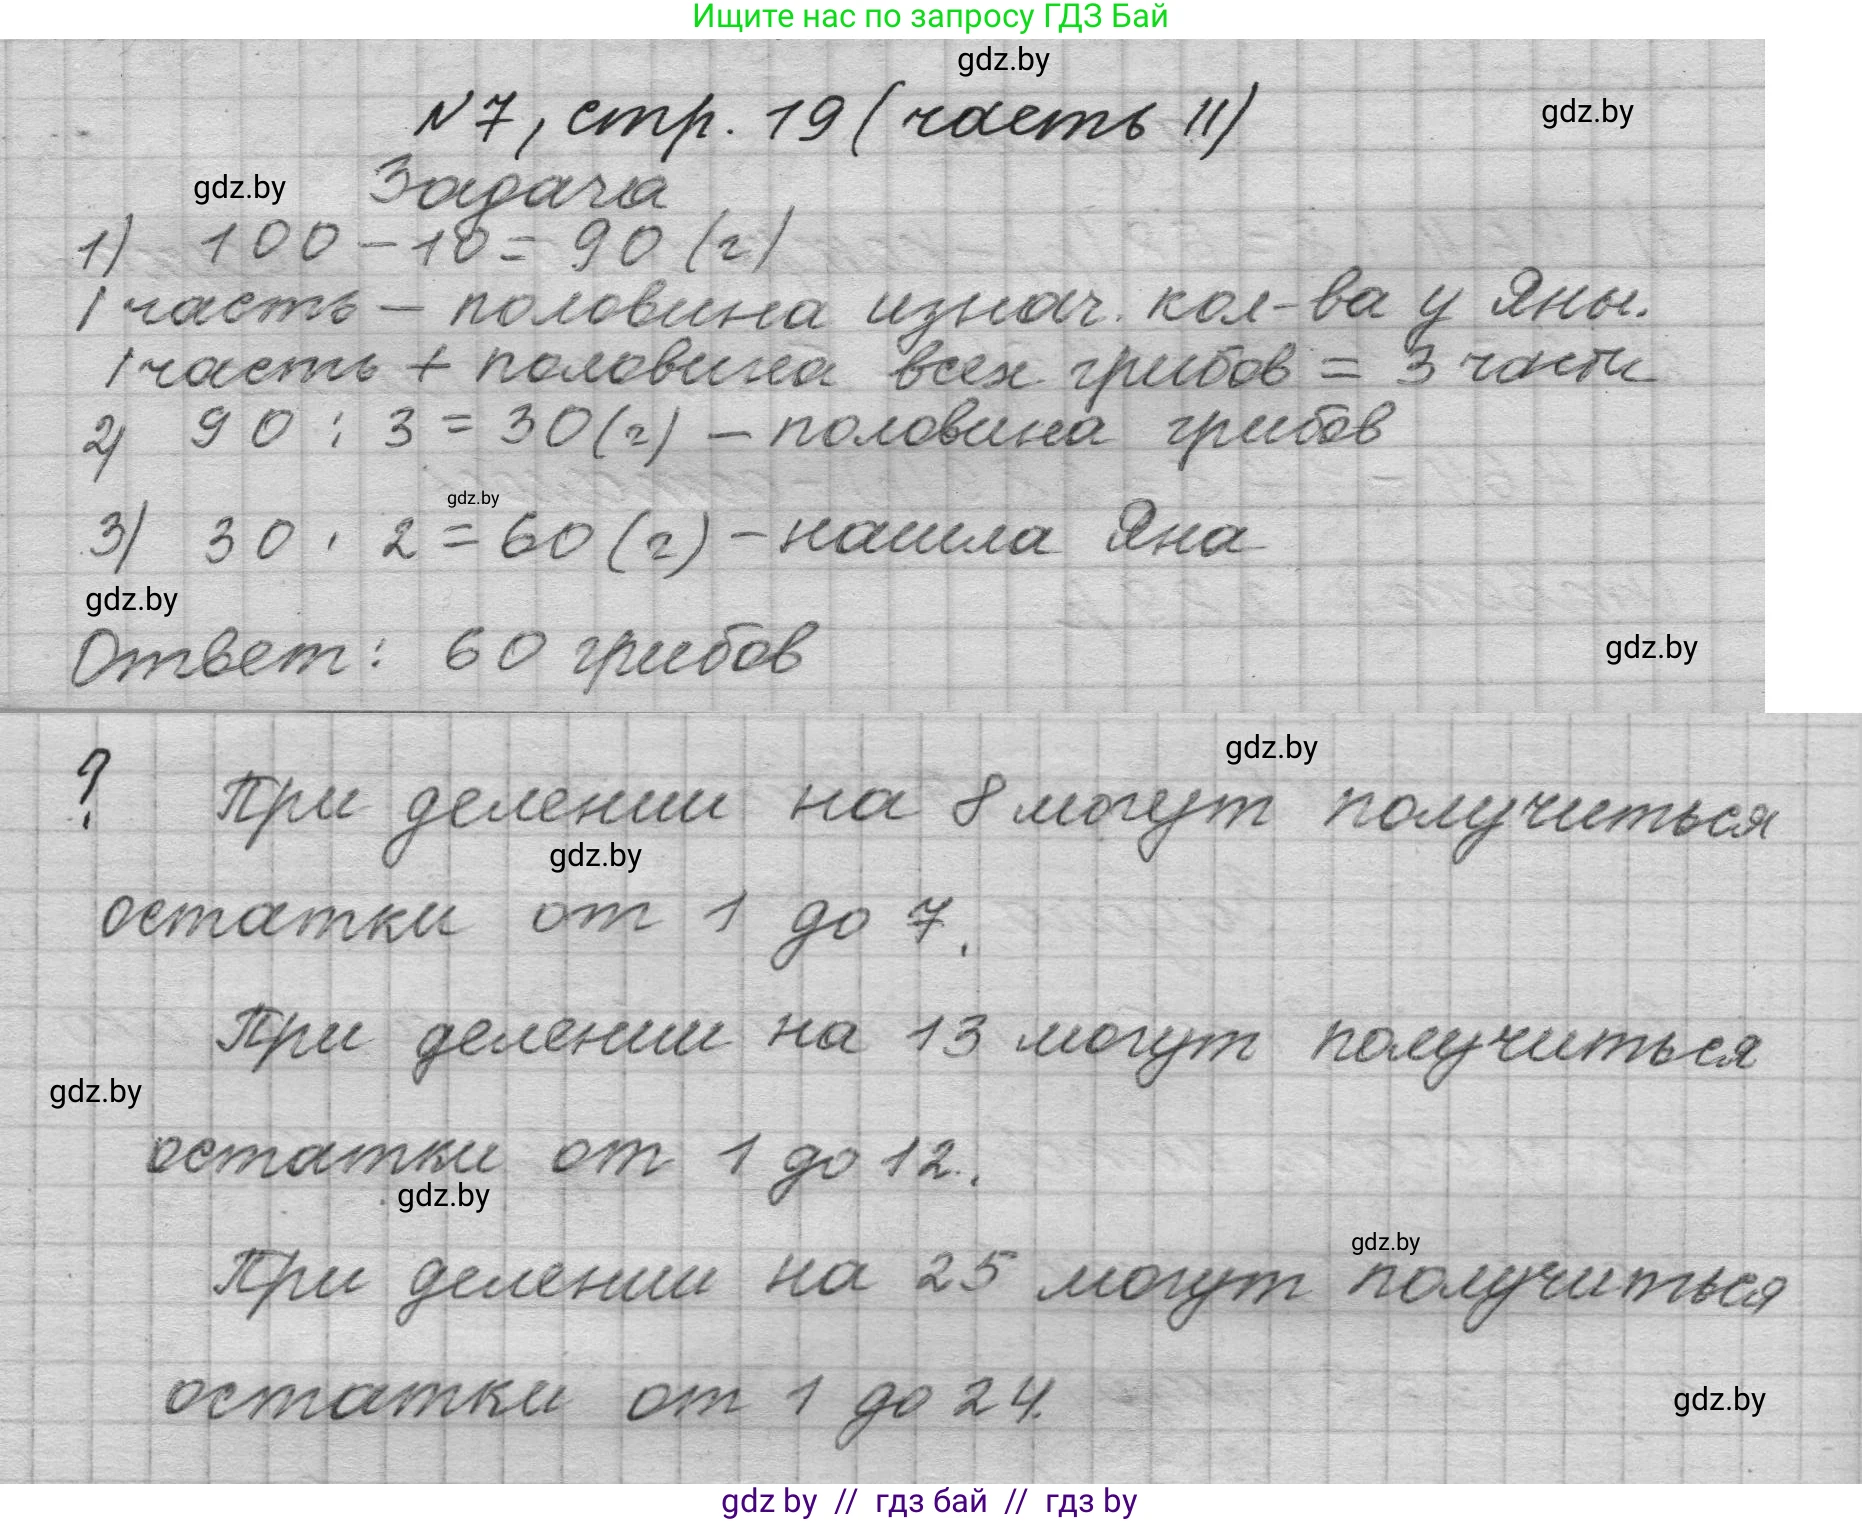 Ищите нас по запросу ГДЗ Бай
gdz.by
№7, стр. 19 (часть II)
gdz.by
gdz.by
Задача
1) 100 - 10 = 90 (г)
1 часть - половина изнач. кол-ва у Яны.
1 часть + половина всех грибов = 3 части
2) 90 : 3 = 30 (г) - половина грибов
gdz.by
3) 30 · 2 = 60 (г) - нашла Яна
gdz.by
Ответ: 60 грибов
gdz.by
gdz.by
? При делении на 8 могут получиться
gdz.by
остатки от 1 до 7.
При делении на 13 могут получиться
gdz.by
остатки от 1 до 12.
gdz.by
gdz.by
При делении на 25 могут получиться
остатки от 1 до 24.
gdz.by
gdz by // гдз бай // гдз by